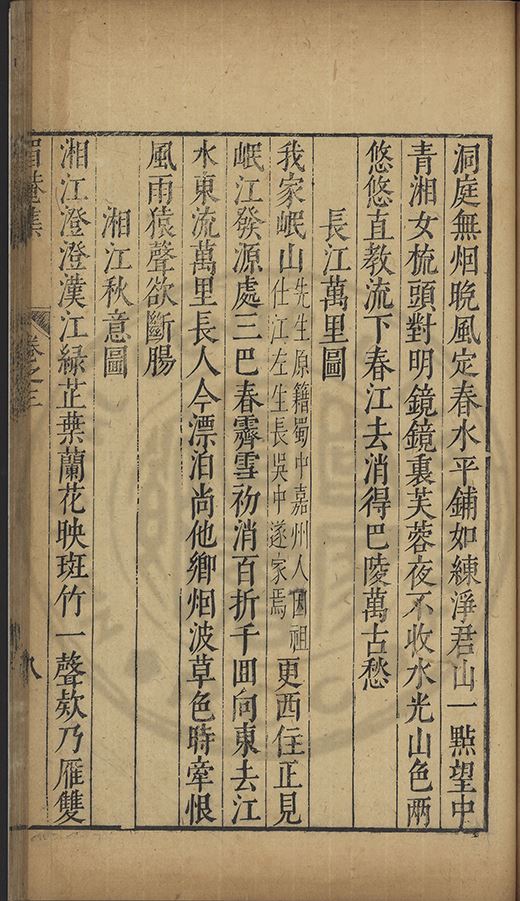 洞庭無烟晚風定春水平鋪如練淨君山一點望中
青湘女梳頭對明鏡鏡裏芙蓉夜不收水光山色兩
悠悠直教流下春江去消得巴陵萬古愁
長江萬里圖
我家岷山先生原籍蜀中嘉州人因祖仕江左生長吳中遂家焉更西住正見
岷江發源處三巴春霽雪初消百折千回向東去江
水東流萬里長人今漂泊尚他鄉烟波草色時牽恨
風雨猿聲欲斷腸
湘江秋意圖
湘江澄澄漢江綠芷葉蘭花映斑竹一聲欸乃雁雙
眉菴集
卷之三
八